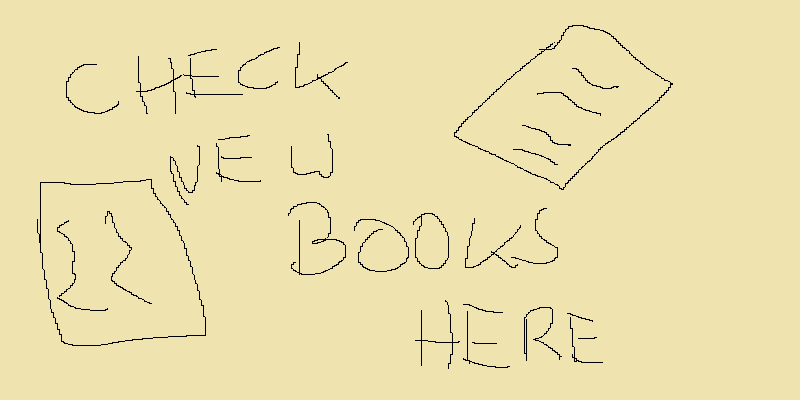 CHECK
NEW
BOOKS
HERE